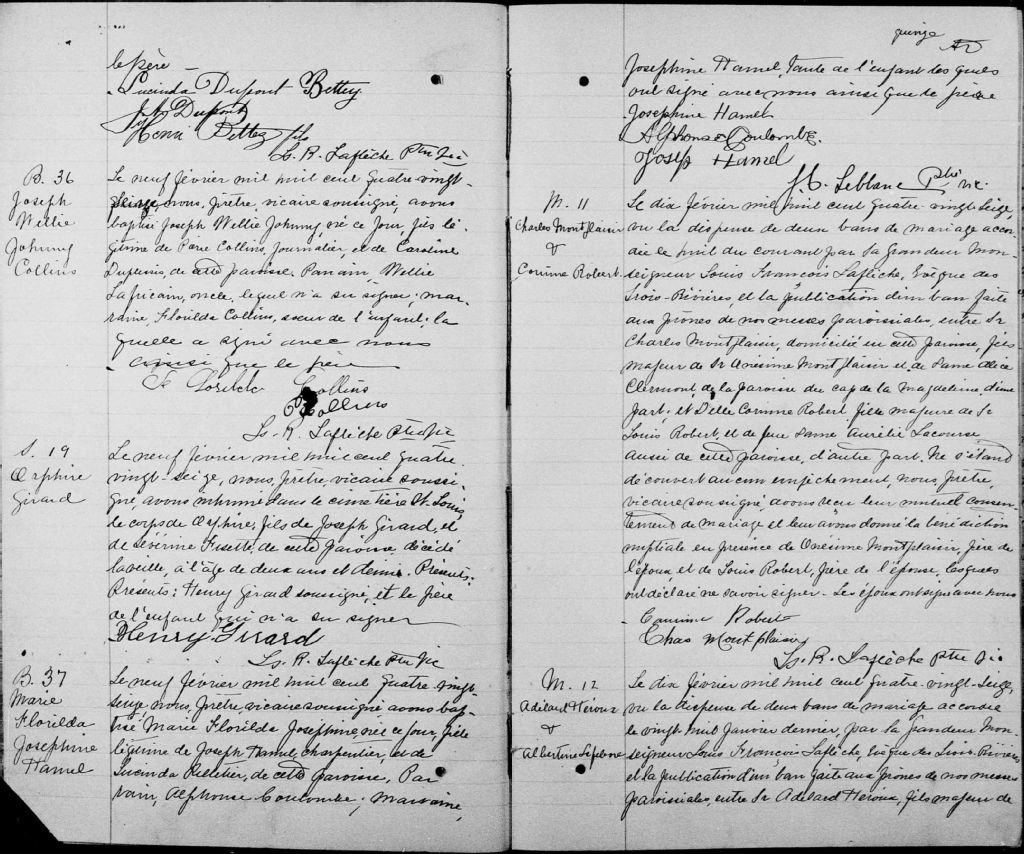 le père -
Lucinda Dupont Bettez
J. A. Dupont
Henri Bettez fils
Ls. R. Laflèche Ptre Vic
B. 36
Joseph
Willie
Johnny
Collins
Le neuf février mil huit cent quatre-vingt-
seize, nous, prêtre, vicaire soussigné, avons
baptisé Joseph Willie Johnny, né ce jour, fils lé-
gitime de Collins, journalier, et de Caroline
Duplessis, de cette paroisse. Parrain, Willie
Lafricain, oncle, lequel n'a su signer; mar-
raine, Florilda Collins, sœur de l'enfant, la
quelle a signé avec nous
ainsi que le père
Collins
Collins
Ls. R. Laflèche Ptre Vic
S. 19
Orphire
Girard
Le neuf février mil huit cent quatre
vingt-seize, nous, prêtre, vicaire soussi-
gné, avons inhumé dans le cimetière St. Louis,
le corps de Orphire, fils de Joseph Girard, et
de Séverine Frisette, de cette paroisse, décédé
la veille, à l'âge de deux ans et demi. Présents:
Présents: Henry Girard soussigné, et le père
de l'enfant qui n'a su signer
Henry Girard
Ls. R. Laflèche Ptre Vic
B. 37
Marie
Florilda
Josephine
Hamel
Le neuf février mil huit cent quatre-vingt-
seize nous, prêtre, vicaire soussigné avons bap-
tisé Marie Florilda Josephine, née ce jour, fille
légitime de Joseph Hamel, charpentier, et de
Lucinda Pelletier, de cette paroisse, Par
rain, Alphonse Coulombe; marraine,
quinze
Josephine Hamel, tante de l'enfant les quels
ont signé avec nous ainsi que le père
Josephine Hamel
Alphonse Coulombe
Josep Hamel
J. E. Leblanc Ptre vic.
M. 11
Charles Montplaisir
&
Corinne Robert
Le dix février mil huit cent quatre-vingt-seize,
vu la dispense de deux bans de mariage accor-
dée le huit du courant par Sa Grandeur Mon-
seigneur Louis François Laflèche, Evêque des
Trois-Rivières, et la publication d'un ban faite
aux prônes de nos messes paroissiales, entre Sr
Charles Montplaisir, domicilié en cette paroisse, fils
majeur de Sr Onésime Montplaisir et de Dame Alice
Clermont, de la paroisse du cap de la Magdeleine d'une
part; et Delle Corinne Robert fille majeure de Sr
Louis Robert, et de feue Dame Aurélie Lacourse
aussi de cette paroisse, d'autre part. Ne s'étant
découvert aucun empêchement, nous, prêtre,
vicaire soussigné, avons reçu leur mutuel consen-
tement de mariage et leur avons donné la bénédiction
nuptiale en présence de Onésime Montplaisir, père de
l'époux, et de Louis Robert, père de l'épouse, lesquels
ont déclaré ne savoir signer. Les époux ont signé avec nous
Corinne Robert
Chas Montplaisir
Ls. R. Laflèche Ptre Vic
M. 12
Adélard Héroux
&
Albertine Lefebvre
Le dix février mil huit cent quatre-vingt-seize,
vu la dispense de deux bans de mariage accordée
le vingt huit Janvier dernier, par Sa Grandeur Mon-
seigneur Louis François Laflèche, Evêque des Trois-Rivières
et la publication d'un ban faite aux prônes de nos messes
paroissiales, entre Sr Adélard Héroux, fils majeur de